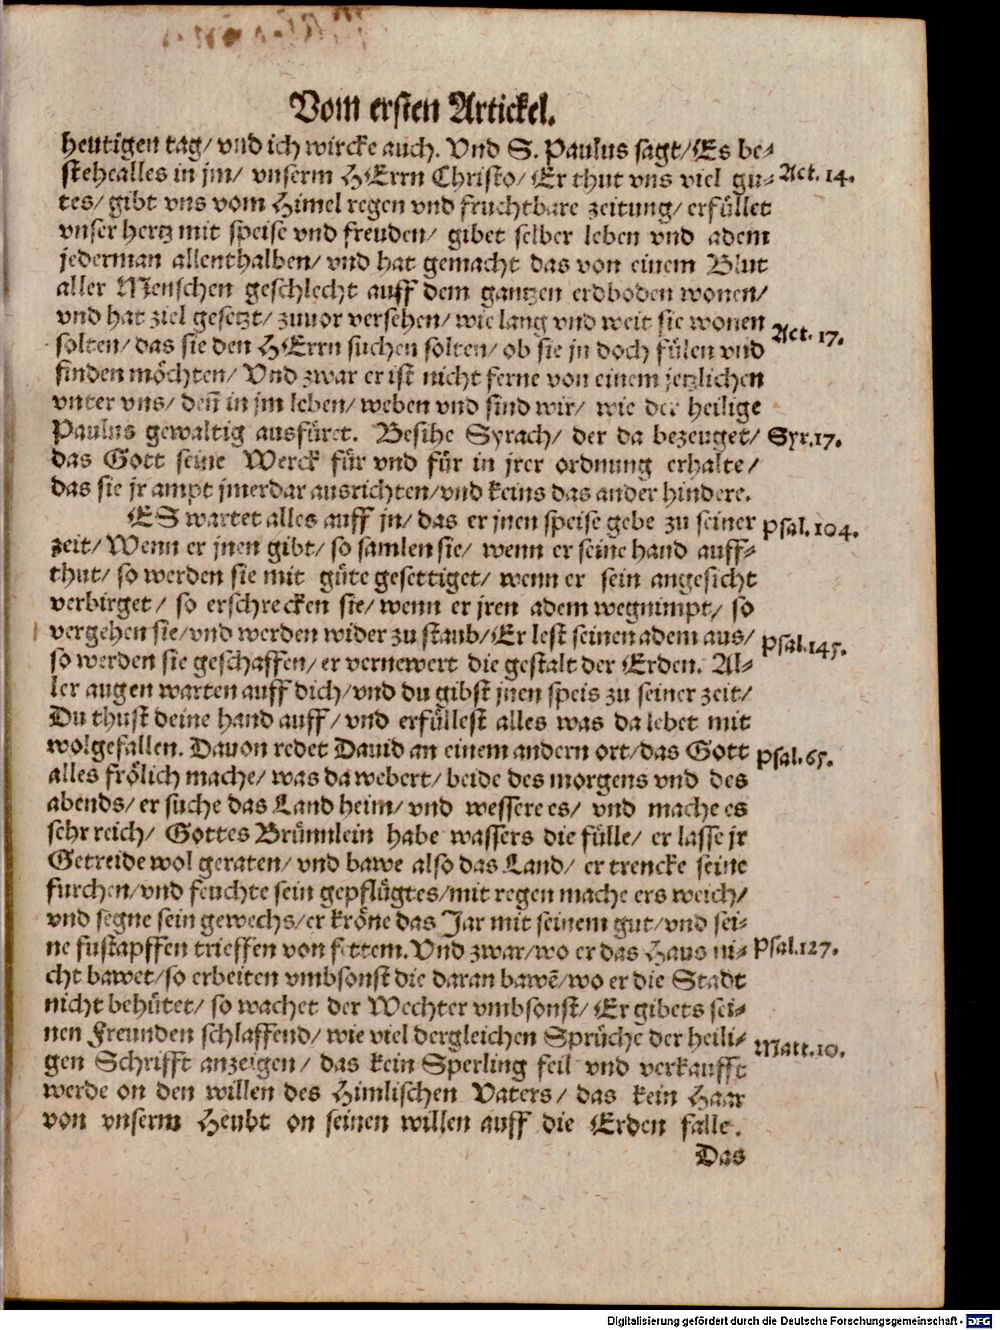 Vom ersten Artickel.
heutigen tag/ vnd ich wircke auch. Vnd S. Paulus sagt/ Es be-
stehe alles in jm/ vnserm HErrn Christo/ Er thut vns viel gu- Act. 14.
tes/ gibt vns vom Himel regen vnd fruchtbare zeitung/ erfüllet
vnser hertz mit speise vnd freuden/ gibet selber leben vnd adem
jederman allenthalben/ vnd hat gemacht das von einem Blut
aller Menschen geschlecht auff dem gantzen erdboden wonen/
vnd hat ziel gesetzt/ zuuor versehen/ wie lang vnd weit sie wonen Act. 17.
solten/ das sie den HErrn suchen solten/ ob sie jn doch fülen vnd
finden möchten/ Vnd zwar er ist nicht ferne von einem jetzlichen
vnter vns/ deñ in jm leben/ weben vnd sind wir/ wie der heilige
Paulus gewaltig ausfüret. Besihe Syrach/ der da bezeuget/ Syr. 17.
das Gott seine Werck für vnd für in jrer ordnung erhalte/
das sie jr ampt jmerdar ausrichten/ vnd keins das ander hindere.
ES wartet alles auff jn/ das er jnen speise gebe zu seiner Psal. 104.
zeit/ Wenn er jnen gibt/ so samlen sie/ wenn er seine hand auff-
thut/ so werden sie mit güte gesettiget/ wenn er sein angesicht
verbirget/ so erschrecken sie/ wenn er jren adem wegnimpt/ so
vergehen sie/ vnd werden wider zu staub/ Er lest seinen adem aus/ Psal. 145.
so werden sie geschaffen/ er vernewert die gestalt der Erden. Al-
ler augen warten auff dich/ vnd du gibst jnen speis zu seiner zeit/
Du thust deine hand auff/ vnd erfüllest alles was da lebet mit
wolgefallen. Dauon redet Dauid an einem andern ort/ das Gott Psal. 65.
alles frölich mache/ was da webert/ beide des morgens vnd des
abends/ er suche das Land heim/ vnd wessere es/ vnd mache es
sehr reich/ Gottes Brünnlein habe wassers die fülle/ er lasse jr
Getreide wol geraten/ vnd bawe also das Land/ er trencke seine
furchen/ vnd feuchte sein gepflügtes/ mit regen mache ers weich/
vnd segne sein gewechs/ er kröne das Jar mit seinem gut/ vnd sei-
ne fustapffen trieffen von fettem. Vnd zwar/ wo er das Haus ni- Psal. 127.
cht bawet/ so erbeiten vmbsonst die daran bawē/ wo er die Stadt
nicht behütet/ so wachet der Wechter vmbsonst/ Er gibets sei-
nen Freunden schlaffend/ wie viel dergleichen Sprüche der heili-
gen Schrifft anzeigen/ das kein Sperling feil vnd verkaufft Matt. 10.
werde on den willen des Himlischen Vaters/ das kein Haar
von vnserm Heubt on seinen willen auff die Erden falle.
Das
Digitalisierung gefördert durch die Deutsche Forschungsgemeinschaft - DFG